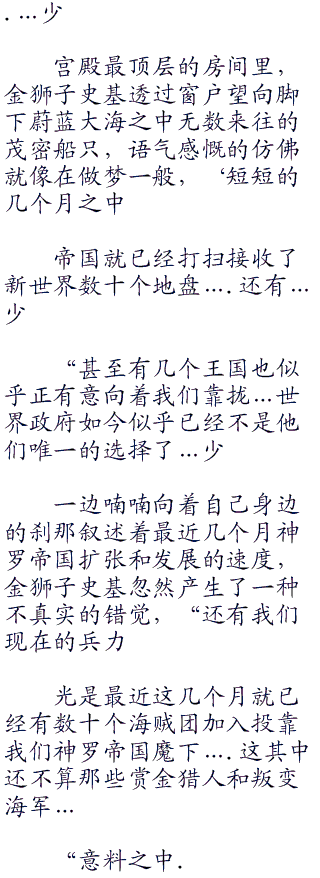 . …少
宫殿最顶层的房间里，
金狮子史基透过窗户望向脚
下蔚蓝大海之中无数来往的
茂密船只，语气感慨的仿佛
就像在做梦一般，‘短短的
几个月之中
帝国就已经打扫接收了
新世界数十个地盘…. 还有…
少
“甚至有几个王国也似
乎正有意向着我们靠拢…世
界政府如今似乎已经不是他
们唯一的选择了…少
一边喃喃向着自己身边
的刹那叙述着最近几个月神
罗帝国扩张和发展的速度，
金狮子史基忽然产生了一种
不真实的错觉，“还有我们
现在的兵力
光是最近这几个月就已
经有数十个海贼团加入投靠
我们神罗帝国魔下…. 这其中
还不算那些赏金猎人和叛变
海军…
“意料之中.